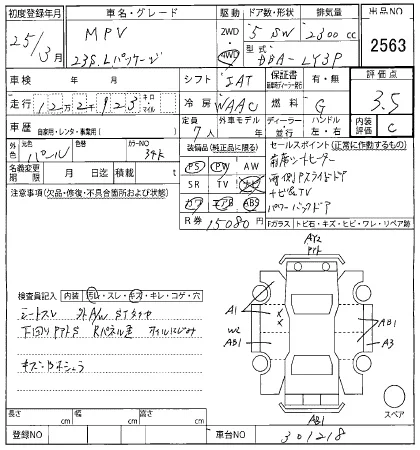 初度登録年月 車名・グレード 駆動 ドア数・形状 排気量 出品NO
25/3月 MPV 2WD 4WD 5 SW 2300 cc 2563
23S.Lパッケージ 型式 DBA-LY3P
車検 年 月 シフト IAT 保証書 有・無 評価点
走行 12万2千923 キロ マイル 冷房 WAAC 燃料 G 3.5
車歴 自家用・レンタ・事業用( ) 定員 7人 外車モデル 年 ディーラー 並行 ハンドル 左・右 内装評価 C
外色 元色 パール カラーNO 34K 装備品(純正品に限る) セールスポイント(正常に作動するもの)
名義変更期限 月 日迄 積載 t PS PW AW 前席シートヒーター
注意事項(欠品・修復・不具合箇所および状態) SR TV ナビ 両側Pスライドドア
カワ エアB ABS ナビ&TV
R券 15080円 パワーバックドア
Fガラス トビ石・キズ・ヒビ・ワレ・リペア跡
検査員記入 内装 汚れ・スレ・キズ・キレ・コゲ・穴
シートスレ 外A/W STスレ
下回りサビS Rパネル歪 オイルにじみ
A1
W2
AB1
AB1
A3
AB1
スペア
長さ cm 幅 cm 高さ cm
登録NO 車台NO 301218